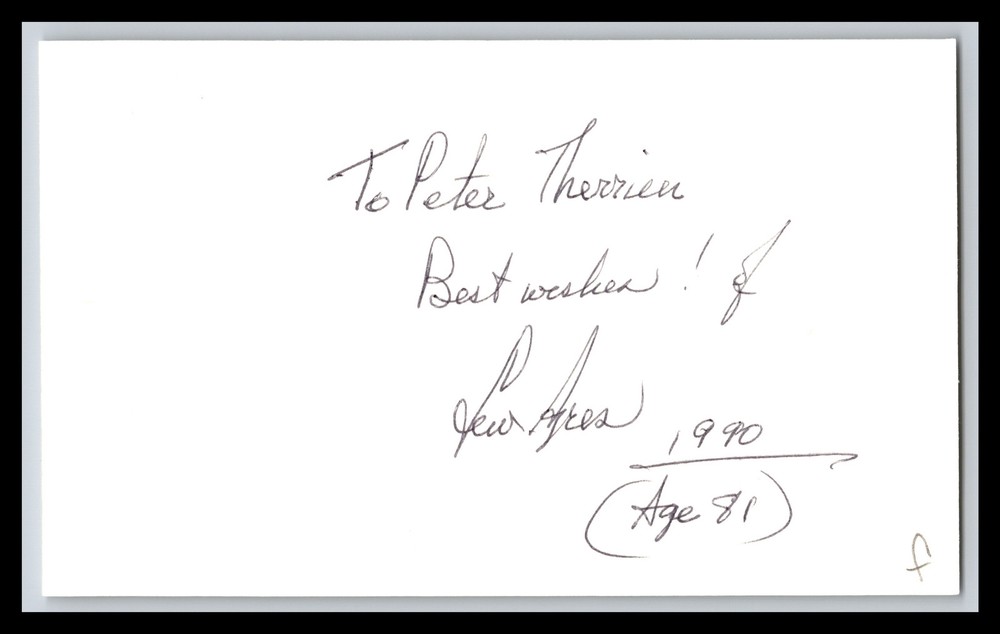 To Peter Therrien
Best wishes! of
Lew Ayres
1990
(Age 81)
f